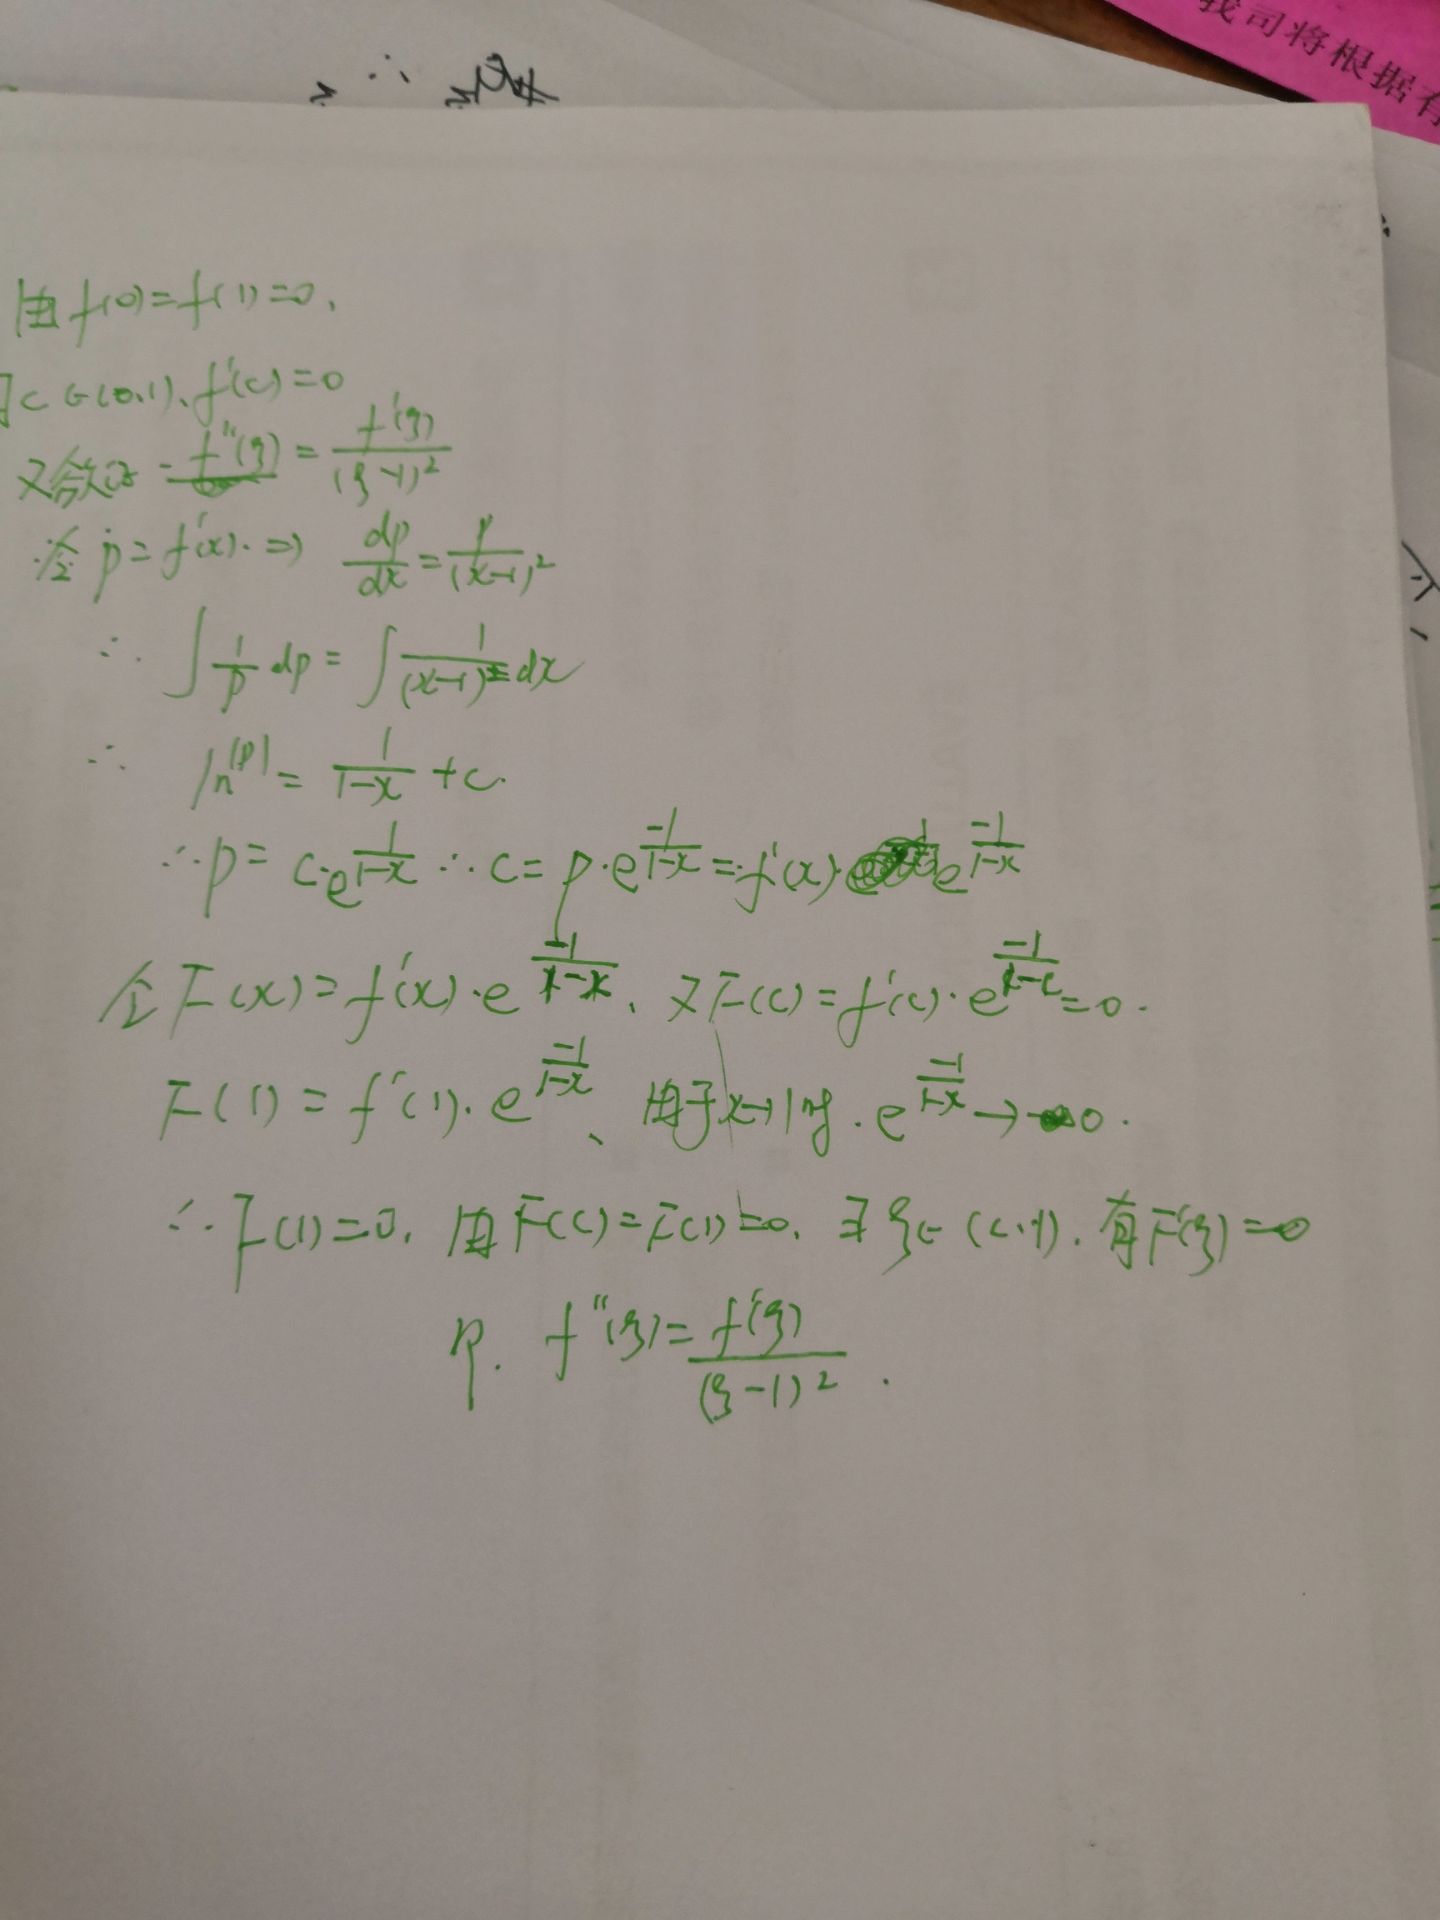 我司将根据有
由f(0)=f(1)=0,
∃c∈(0,1), f'(c)=0
又欲证 f''(ξ) = f'(ξ)/(ξ-1)²
令 p=f'(x). ⇒ dp/dx = p/(x-1)²
∴ ∫ 1/p dp = ∫ 1/(x-1)² dx
∴ ln|p| = 1/(1-x) + c.
∴ p = c·e^(1/(1-x)) ∴ c = p·e^(-1/(1-x)) = f'(x)·e^(-1/(1-x))
令 F(x)=f'(x)·e^(-1/(1-x)), 又F(c)=f'(c)·e^(-1/(1-c))=0.
F(1)=f'(1)·e^(-1/(1-x))、由于x→1时. e^(-1/(1-x))→0.
∴ F(1)=0, 由F(c)=F(1)=0, ∃ξ∈(c,1), 有F'(ξ)=0
即. f''(ξ)= f'(ξ)/(ξ-1)² .